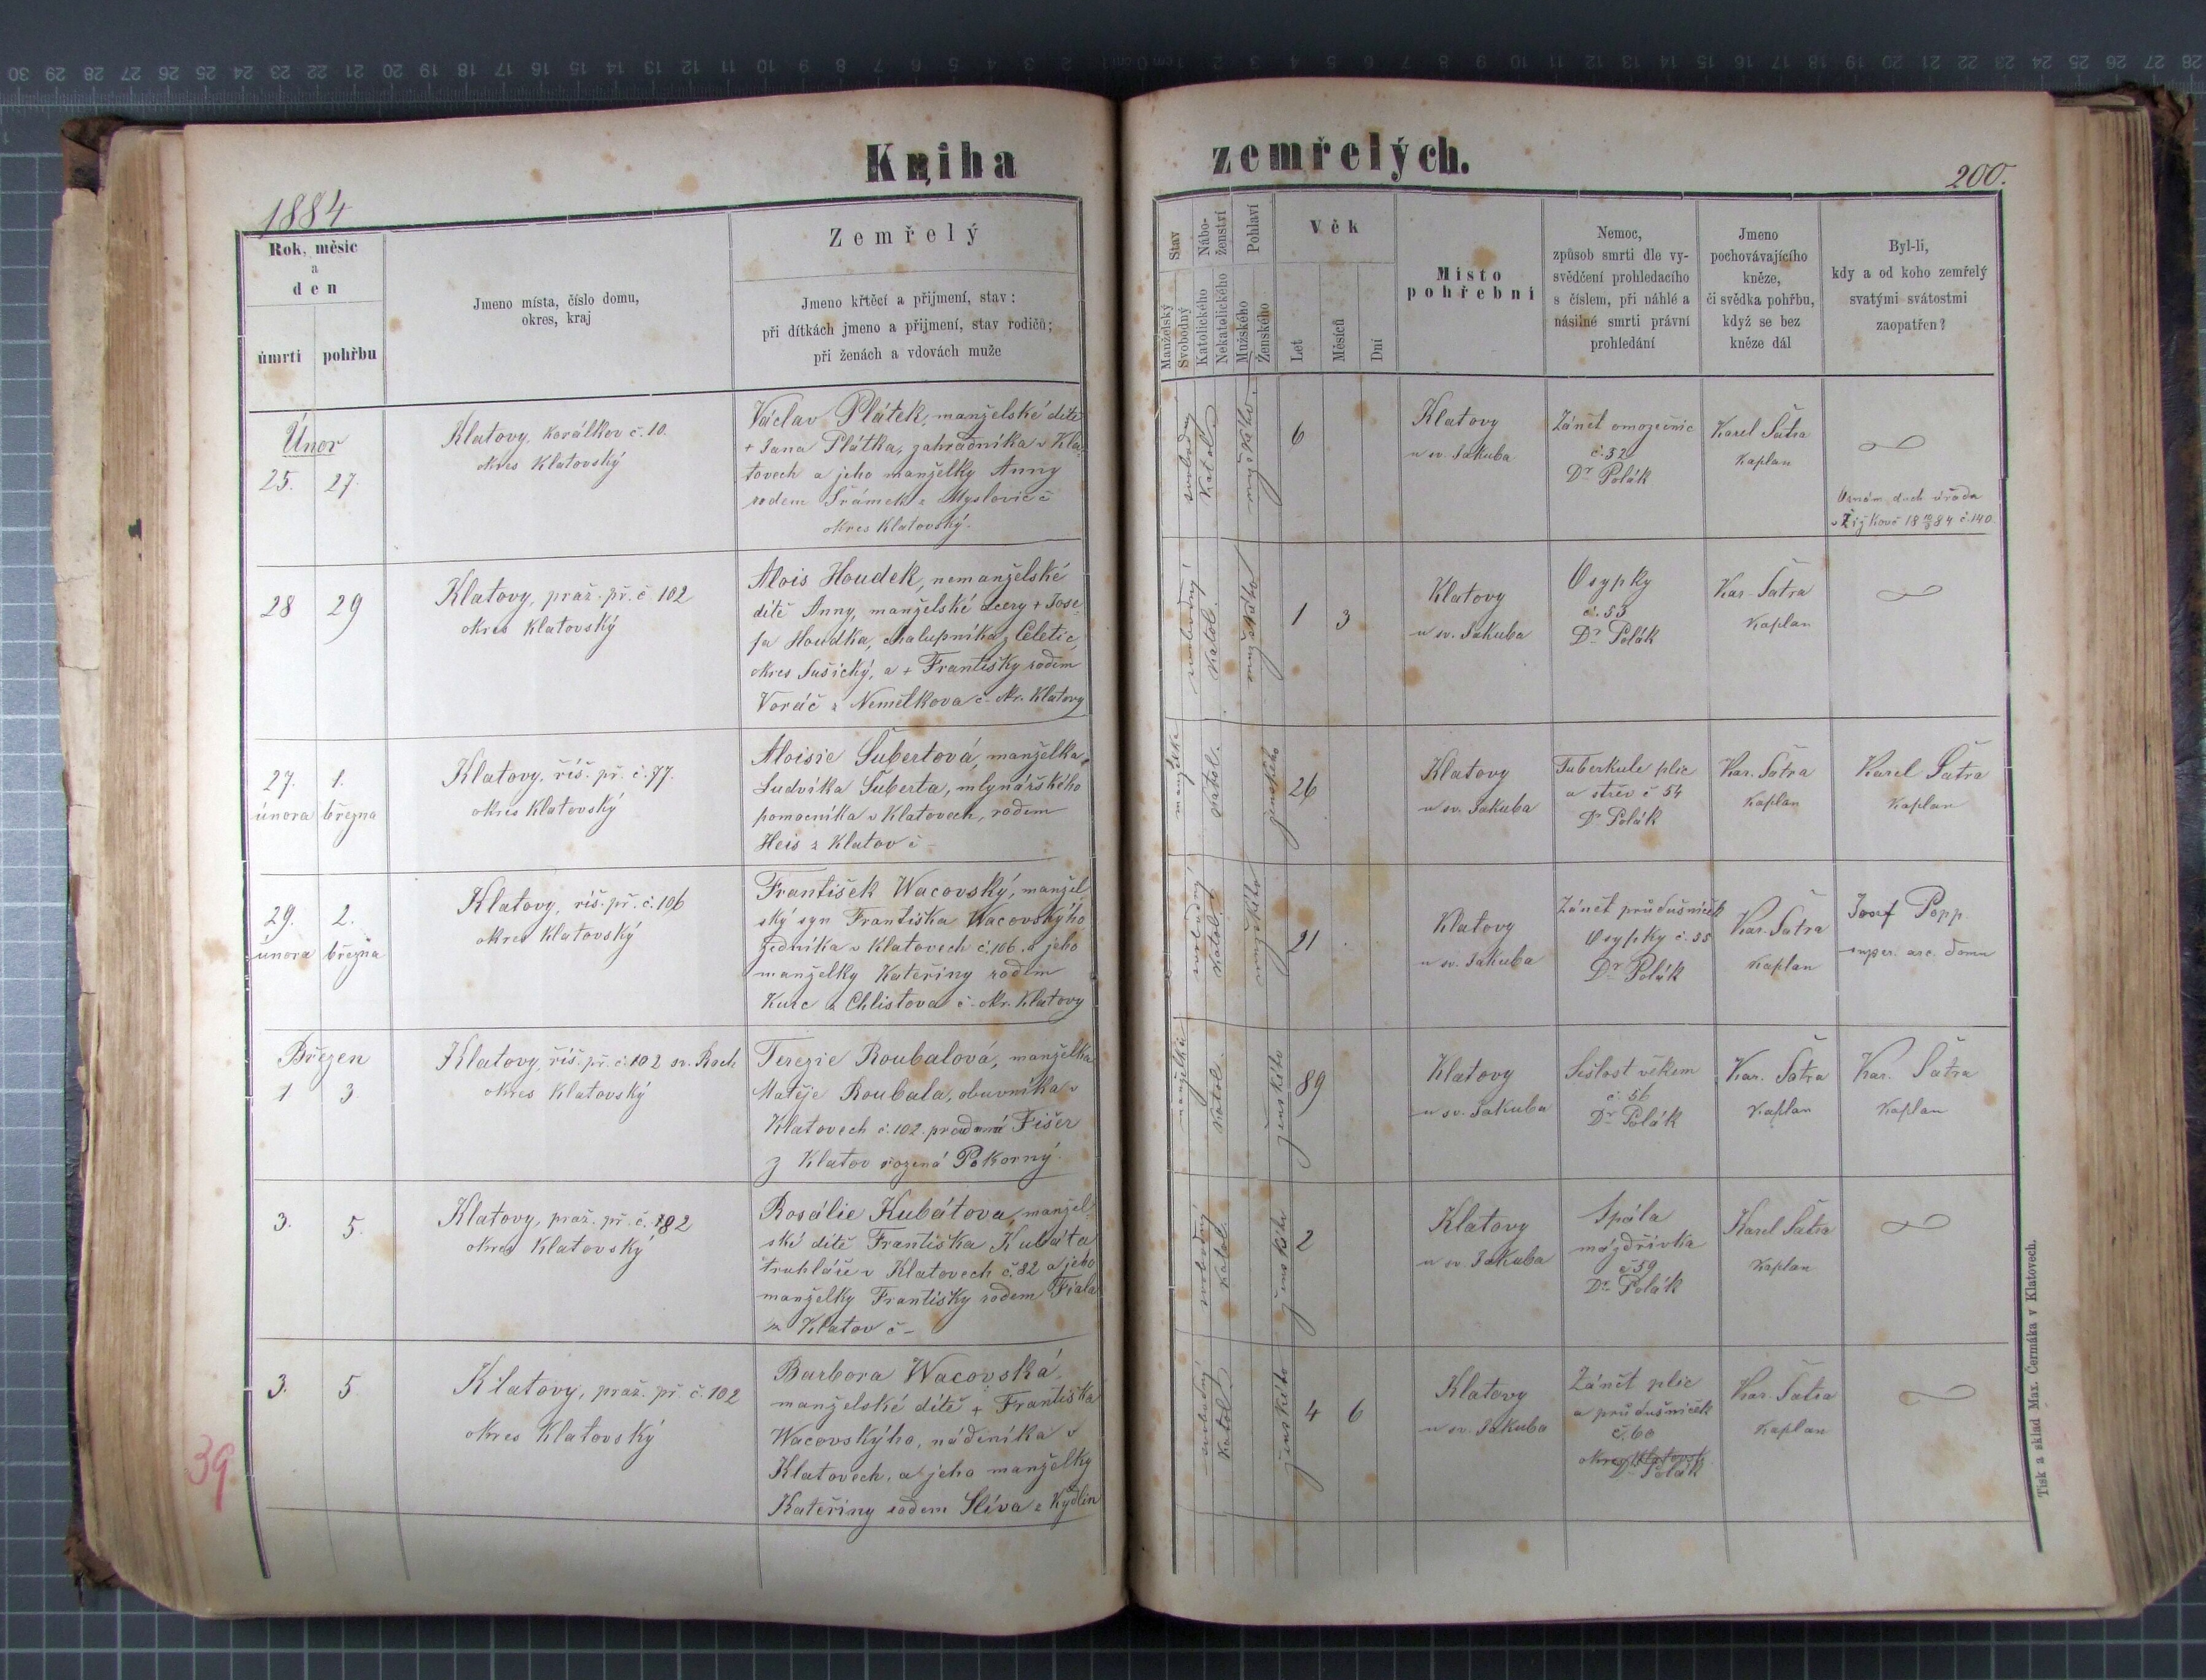 Kniha
zemřelých.
1884
200.
Rok, měsíc
a
den
úmrtí
pohřbu
Jmeno místa, číslo domu,
okres, kraj
Zemřelý
Jmeno křtěcí a přijmení, stav:
při dítkách jmeno a přijmení, stav rodičů;
při ženách a vdovách muže
Stav
Manželský
Svobodný
Nábo-
ženství
Katolického
Nekatolického
Pohlaví
Mužského
Ženského
Věk
Let
Měsíců
Dní
Místo
pohřební
Nemoc,
způsob smrti dle vy-
svědčení prohledacího
s číslem, při náhlé a
násilné smrti právní
prohledání
Jmeno
pochovávajícího
kněze,
či svědka pohřbu,
když se bez
kněze dál
Byl-li,
kdy a od koho zemřelý
svatými svátostmi
zaopatřen?
Únor
25.
27.
Klatovy, korálkov č. 10.
okres Klatovský
Václav Plátek, manželské dítě
+ Jana Plátka, zahradníka v Kla-
tovech a jeho manželky Anny
rodem Šrámek z Myslovic č
okres Klatovský.
svobodný
Katol.
mužského
6
Klatovy
u sv. Jakuba
Zánět omozečnic
č. 32
Dr Polák
Karel Šatra
Kaplan
Oznám. duch úřadu
v Žižkově 18 84 č. 140.
28
29
Klatovy, praž. př. č. 102
okres Klatovský
Alois Houdek, nemanželské
dítě Anny, manželské dcery + Jose-
fa Houdka, chalupníka z Čeletic,
okres Sušický, a + Františky rodem
Voráč z Nemilkova č- okr. Klatovy
svobodný
Katol.
mužského
1
3
Klatovy
u sv. Jakuba
Osypky
č. 53
Dr Polák
Kar. Šatra
Kaplan
27.
února
1.
března
Klatovy, říš. př. č. 77.
okres Klatovský
Aloisie Šubertová, manželka
Ludvíka Šuberta, mlynářského
pomocníka v Klatovech, rodem
Heis z Klatov č-
manželská
Katol.
ženského
26
Klatovy
u sv. Jakuba
Tuberkule plic
a střev č 54
Dr Polák
Kar. Šatra
Kaplan
Karel Šatra
Kaplan
29.
února
2.
března
Klatovy, říš. př. č. 106
okres Klatovský
František Wacovský, manžel-
ský syn Františka Wacovského
zedníka v Klatovech č. 106. a jeho
manželky Kateřiny rodem
Kurc z Chlistova č- okr. Klatovy
svobodný
Katol.
mužského
21
Klatovy
u sv. Jakuba
Zánět průdušniček
Osypky č. 55
Dr Polák
Kar. Šatra
Kaplan
Josef Popp
super. arc. domu
Březen
1
3
Klatovy, říš. př. č. 102 sv. Roch
okres Klatovský
Terezie Roubalová, manželka
Matěje Roubala, obuvníka v
Klatovech č. 102. Fišer
z Klatov rozená Pokorný.
manželka
Katol.
ženského
89
Klatovy
u sv. Jakuba
Sešlost věkem
č. 56
Dr Polák
Kar. Šatra
Kaplan
Kar. Šatra
Kaplan
3.
5.
Klatovy, praž. př. č. 182
okres Klatovský
Rosálie Kubátova, manžel-
ské dítě Františka Kubáta
truhláře v Klatovech č. 82 a jeho
manželky Františky rodem Fiala
z Klatov č-
svobodný
Katol.
ženského
2
Klatovy
u sv. Jakuba
Spála
mázdřivka
č 59
Dr Polák
Karel Šatra
Kaplan
3.
5.
Klatovy, praž. př. č. 102
okres Klatovský
Barbora Wacovská
manželské dítě + Františka
Wacovského, nádeníka v
Klatovech, a jeho manželky
Kateřiny rodem Slíva z Kydlin
svobodný
Katol.
ženského
4
6
Klatovy
u sv. Jakuba
Zánět plic
a průdušniček
č. 60
okres Klatovsk
Dr Polák
Kar. Šatra
Kaplan
39
Tisk a sklad Max. Čermáka v Klatovech.